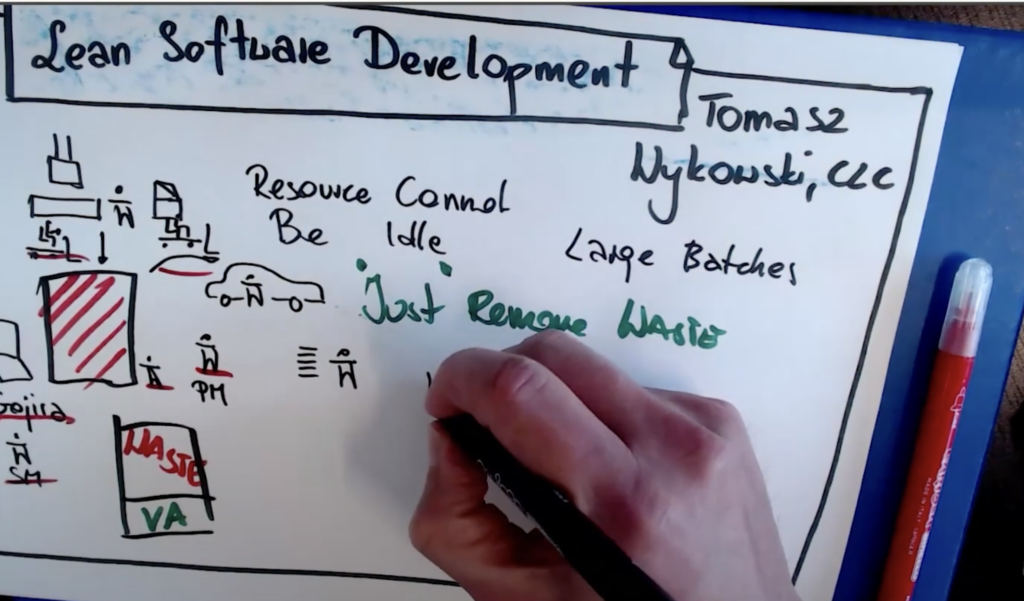 Lean Software Development
Tomasz
Wykowski, CLC
Resource Cannot
Be Idle
Large Batches
"Just Remove WASTE
PM
Gojira
SM
WASTE
VA